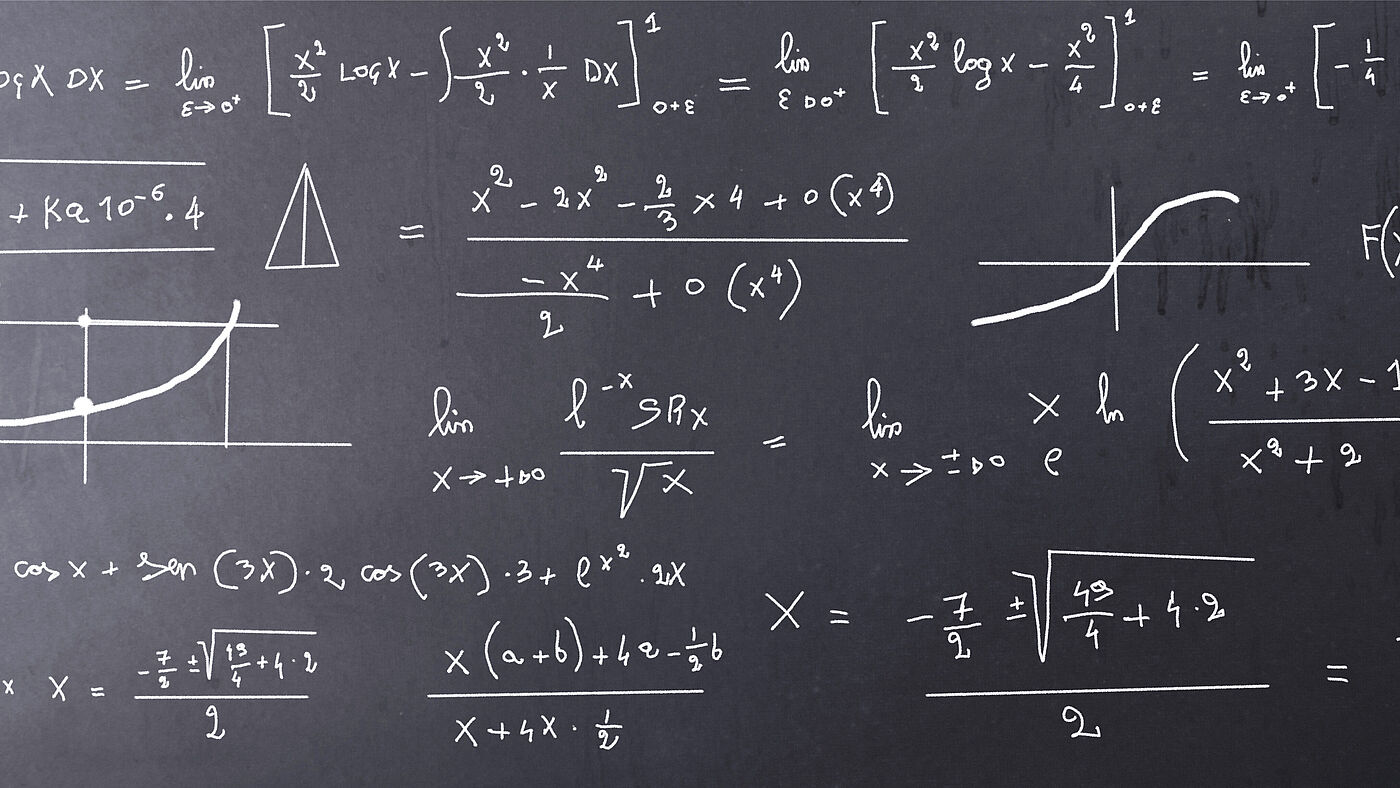 ogx DX = lim ε→0⁺ [x²/2 LOGX − ∫ x²/2 · 1/x DX]¹ ₀₊ε = lim ε→0⁺ [x²/2 log x − x²/4]¹ ₀₊ε = lim ε→0⁺ [− 1/4
+ Ka 10⁻⁶ · 4
= (x² − 2x² − 2/3 x 4 + 0 (x⁴)) / (−x⁴/2 + 0 (x⁴))
F(x
lim x→+∞ ℓ⁻ˣ SRx / √x = lim x→±∞ e x ln (x² + 3x − 1 / x² + 2
cos x + sen (3x) · 2 cos (3x) · 3 + e^x² · 2x
x X = (−7/2 ± √(49/4 + 4 · 2)) / 2
(x (a+b) + 4a − 1/2 b) / (x + 4x · 1/2)
X = (−7/2 ± √(49/4 + 4 · 2)) / 2 =